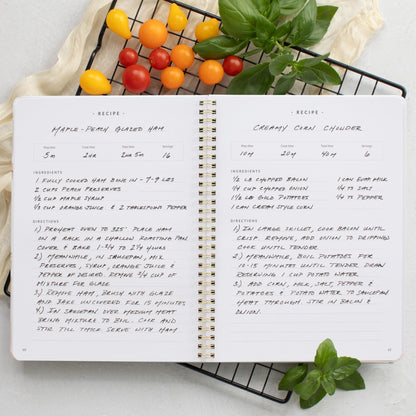 - RECIPE -
MAPLE-PEACH GLAZED HAM
Prep Time
Cook Time
Total Time
Servings
5m
2HR
2HR 5m
16
INGREDIENTS
1 FULLY COOKED HAM BONE IN - 7-9 LBS
2 CUPS PEACH PRESERVES
1/2 CUP MAPLE SYRUP
1/3 CUP ORANGE JUICE & 2 TABLESPOONS PEPPER
DIRECTIONS
1) PREHEAT OVEN TO 325°. PLACE HAM
ON A RACK IN A SHALLOW ROASTING PAN
COVER & BAKE 1-3/4 TO 2 1/4 HOURS
2) MEANWHILE, IN SAUCEPAN, MIX
PRESERVES, SYRUP, ORANGE JUICE &
PEPPER AS DESIRED. REMOVE 3/4 CUP OF
MIXTURE FOR GLAZE
3) REMOVE HAM, BRUSH WITH GLAZE
AND BAKE UNCOVERED FOR 15 MINUTES
4) IN SAUCEPAN OVER MEDIUM HEAT
BRING MIXTURE TO BOIL. COOK AND
STIR TILL THICK SERVE WITH HAM
- RECIPE -
CREAMY CORN CHOWDER
Prep Time
Cook Time
Total Time
Servings
10m
20m
40m
6
INGREDIENTS
1/2 LB CHOPPED BACON
1 CAN EVAP MILK
1/4 CUP CHOPPED ONION
1/4 t. SALT
1 1/2 LB GOLD POTATOES
1/4 t. PEPPER
1 CAN CREAM STYLE CORN
DIRECTIONS
1) IN LARGE SKILLET, COOK BACON UNTIL
CRISP. REMOVE, ADD ONION TO DRIPPINGS
COOK UNTIL TENDER
2) MEANWHILE, BOIL POTATOES FOR
10-15 MINUTES UNTIL TENDER. DRAIN
RESERVING 1 CUP POTATO WATER
3) ADD CORN, MILK, SALT, PEPPER &
POTATOES & POTATO WATER TO SAUCEPAN
HEAT THROUGH. STIR IN BACON &
ONION.